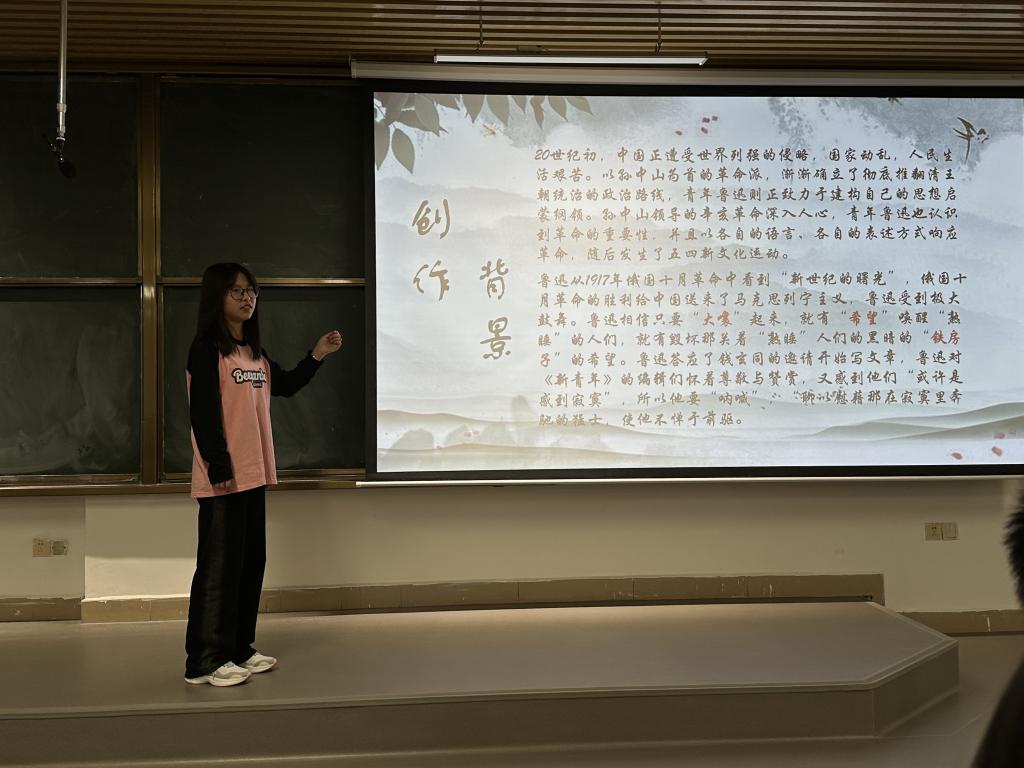 创作
背景
20世纪初，中国正遭受世界列强的侵略，国家动乱，人民生
活艰苦。以孙中山为首的革命派，渐渐确立了彻底推翻清王
朝统治的政治路线，青年鲁迅则正致力于建构自己的思想启
蒙纲领。孙中山领导的辛亥革命深入人心，青年鲁迅也认识
到革命的重要性，并且以各自的语言、各自的表述方式响应
革命，随后发生了五四新文化运动。
鲁迅从1917年俄国十月革命中看到“新世纪的曙光”，俄国十
月革命的胜利给中国送来了马克思列宁主义，鲁迅受到极大
鼓舞。鲁迅相信只要“大家”起来，就有“希望”唤醒“熟
睡”的人们，就有毁坏那关着“熟睡”人们的黑暗的“铁房
子”的希望。鲁迅答应了钱玄同的邀请开始写文章，鲁迅对
《新青年》的编辑们怀着尊敬与赞赏，又感到他们“或许是
感到寂寞”，所以他要“呐喊”，“聊以慰藉那在寂寞里奔
驰的猛士，使他不惮于前驱。